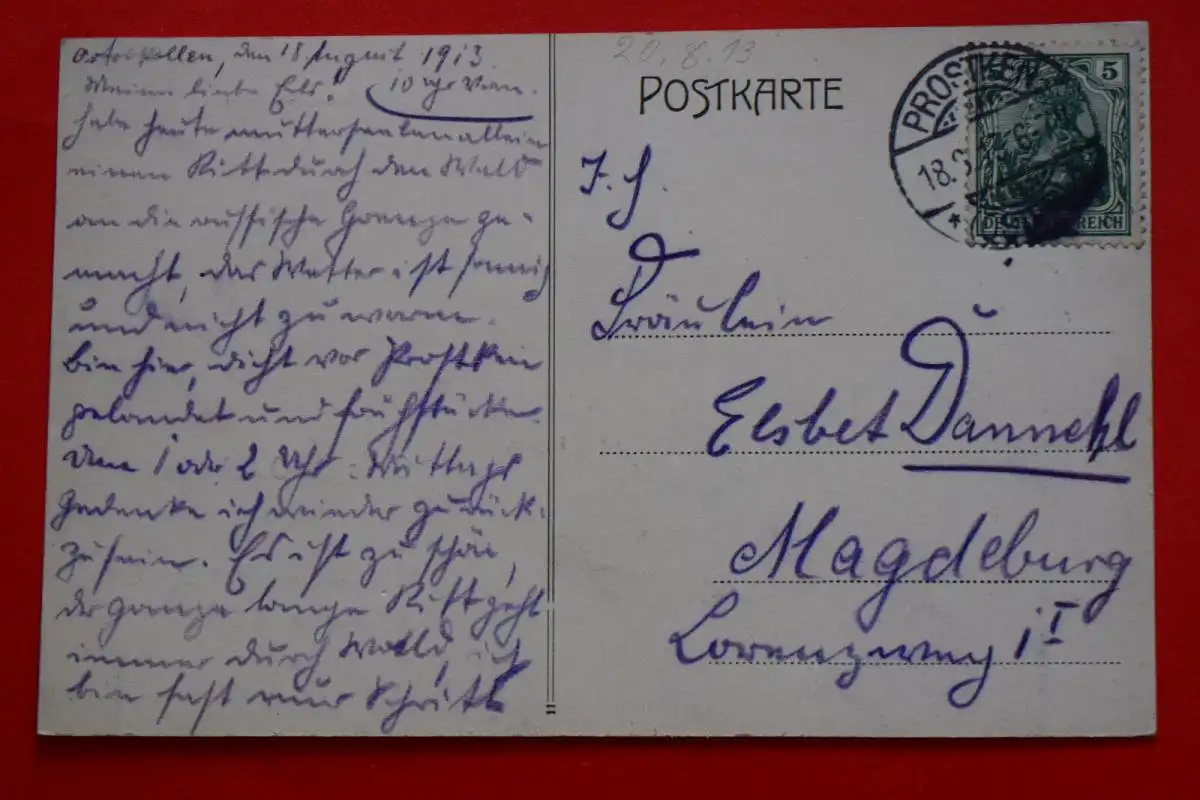 den 18 August 1913
Meine liebe Els! 10 Uhr Vorm.
habe heute mutterseelenallein
einen Ritt durch den Wald
an die russische Grenze ge-
macht, das Wetter ist sonnig
und nicht zu warm.
bin hier, dicht vor Prostken
gelandet und frühstücke.
Um 1 oder 2 Uhr Mittags
gedenke ich wieder zurück-
zusein. Es ist zu schön,
der ganze lange Ritt geht
immer durch Wald, ich
bin fast nur Schritt
20.8.13
POSTKARTE
PROSTKEN
18.
5
DEUTSCHES REICH
Fräulein
Elsbet Dannehl
Magdeburg
Lorenzweg 1 I